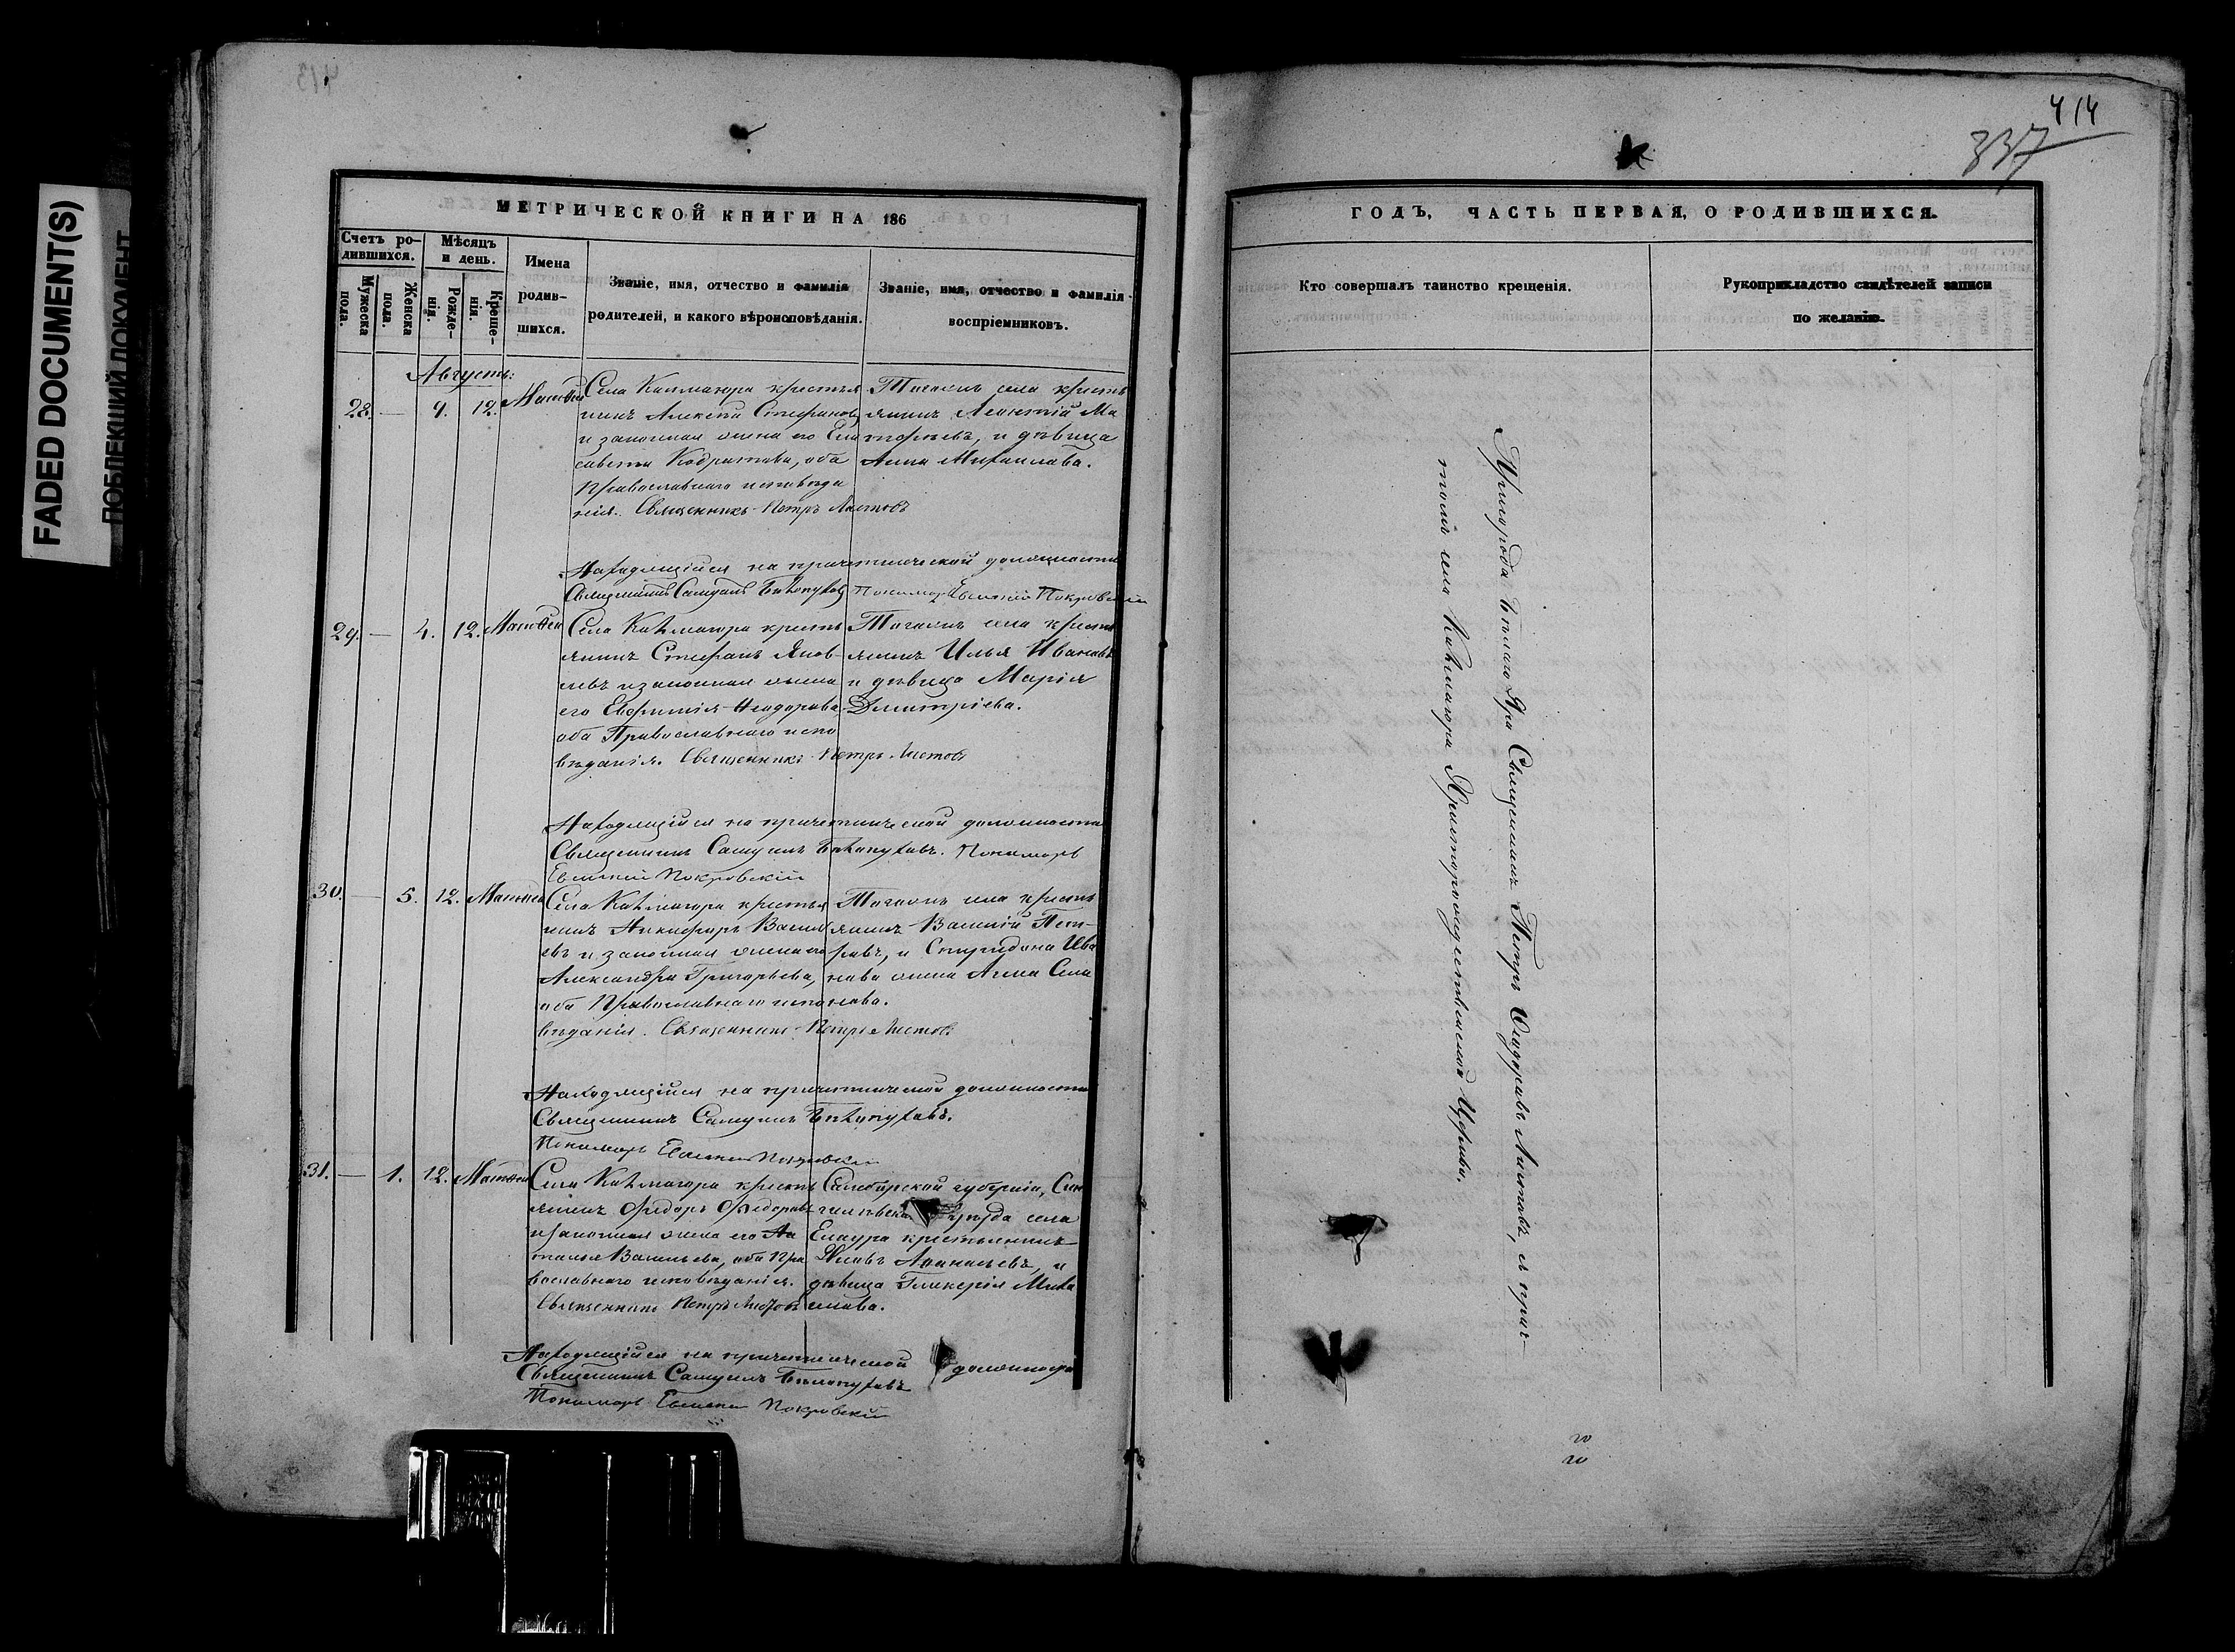 FADED DOCUMENT(S)
ПОБЛЕКШИЙ ДОКУМЕНТ
413
МЕТРИЧЕСКОЙ КНИГИ НА 186
Счетъ ро-
дившихся.
Мужеска
пола.
Женска
пола.
Мѣсяцъ
и день.
Рожде-
нія.
Креще-
нія.
Имена
родив-
шихся.
Званіе, имя, отчество и фамилія
родителей, и какого вѣроисповѣданія.
Званіе, имя, отчество и фамилія
воспріемниковъ.
Августъ:
28. — 9. 12. Матөей
Села Кашмагора крестья
нинъ Алексѣй Стефановъ
и законная жена его Ели
савета Кодратова, оба
Православнаго исповѣда
нія. Священникъ Петръ Листовъ
Тогожъ села кресть
янинъ Леонтій Ма
тоѳѣевъ, и дѣвица
Анна Михаилова.
Находящійся на причетнической должности
Священникъ Самуилъ Пономарь Евгеній Покровскій
29. — 4. 12. Матөей
Села Кашмагора кресть
янинъ Стефанъ Яков-
левъ и законная жена
его Евфимія Ѳеодорова
оба Православнаго испо
вѣданія. Священникъ Петръ Листовъ
Тогожъ села кресть
янинъ Илья Ивановъ
и дѣвица Марія
Димитріева.
Находящійся на причетнической должности
Священникъ Самуилъ Пономарь
Евгеній Покровскій
30. — 5. 12. Матөей
Села Кашмагора крестья
нинъ Никифоръ Василь
евъ и законная жена его
Александра Григорьева,
оба Православнаго испо
вѣданія. Священникъ Петръ Листовъ
Тогожъ села кресть
янинъ Василій Пет-
ровъ, и Спиридона Ива
нова жена Анна Семе
нова.
Находящійся на причетнической должности
Священникъ Самуилъ
Пономарь Евгеній Покровскій
31. — 1. 12. Матөей
Села Кашмагора кресть
янинъ Ѳедоръ Ѳедоровъ
и законная жена его На
талья Васильева, оба Пра
вославнаго исповѣданія.
Священникъ Петръ Листовъ
Симбирской губерніи, Сен
гилѣевска уѣзда села
Елаура крестьянинъ
Яковъ Афанасьевъ, и
дѣвица Гликерія Миха
илова.
Находящійся на причетнической должности
Священникъ Самуилъ
Пономарь Евгеній Покровскій
414
337
ГОДЪ, ЧАСТЬ ПЕРВАЯ, О РОДИВШИХСЯ.
Кто совершалъ таинство крещенія.
Рукоприкладство свидѣтелей записи
по желанію.
Пригорода Бѣлаго Яра Священникъ Петръ Ѳеодоровъ Листовъ, съ прич-
томъ села Кашмагора Христорождественской Церкви.